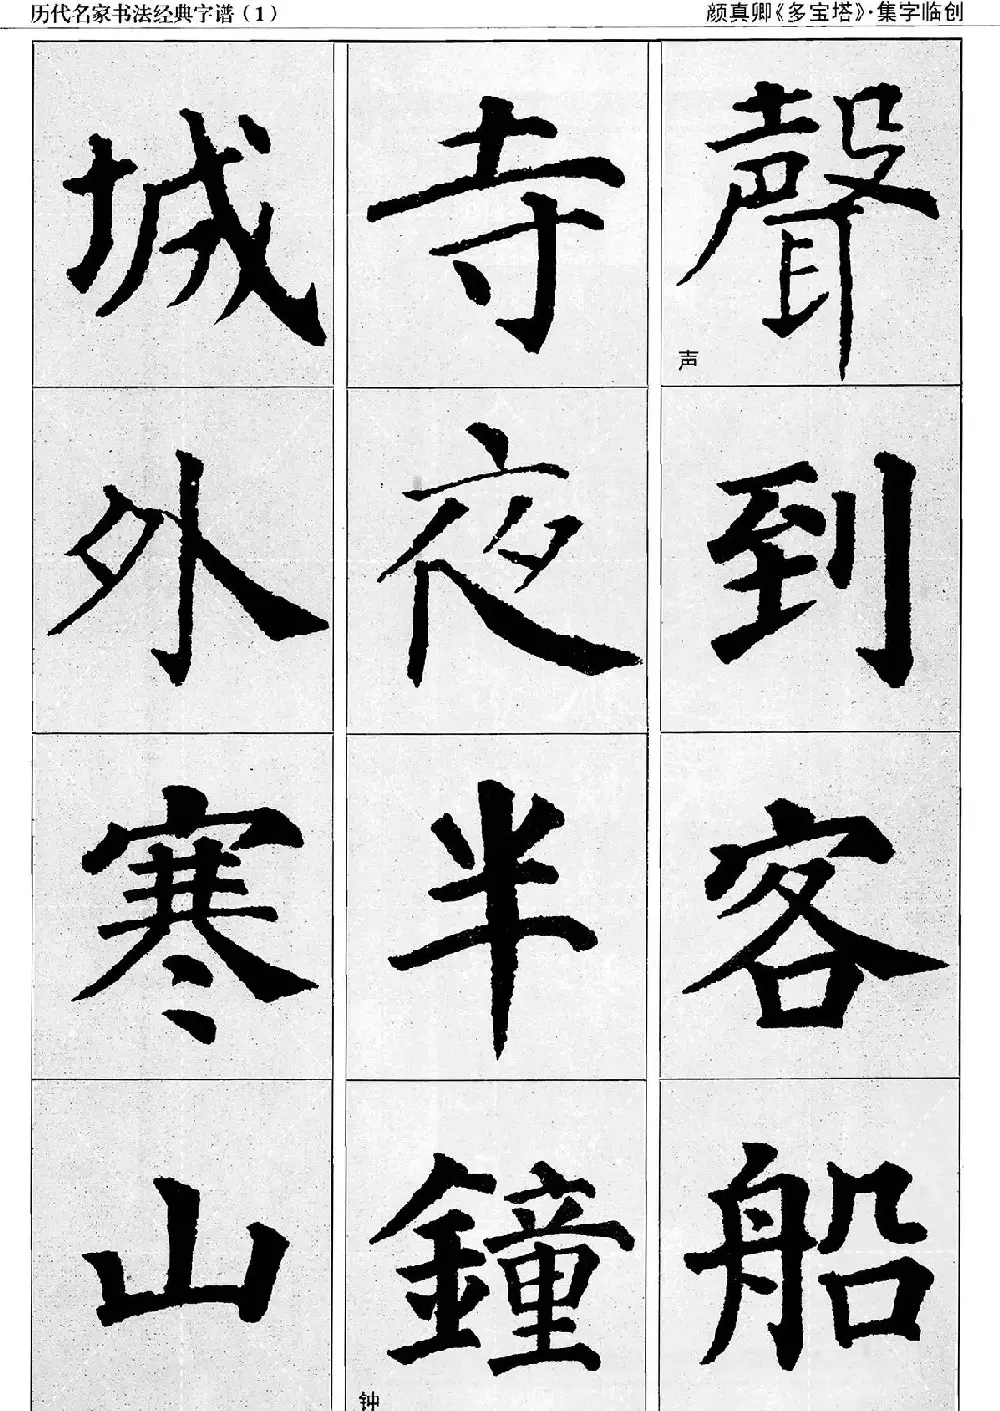 历代名家书法经典字谱（1）
颜真卿《多宝塔》·集字临创
城外寒山
寺夜半鐘
钟
聲到客船
声